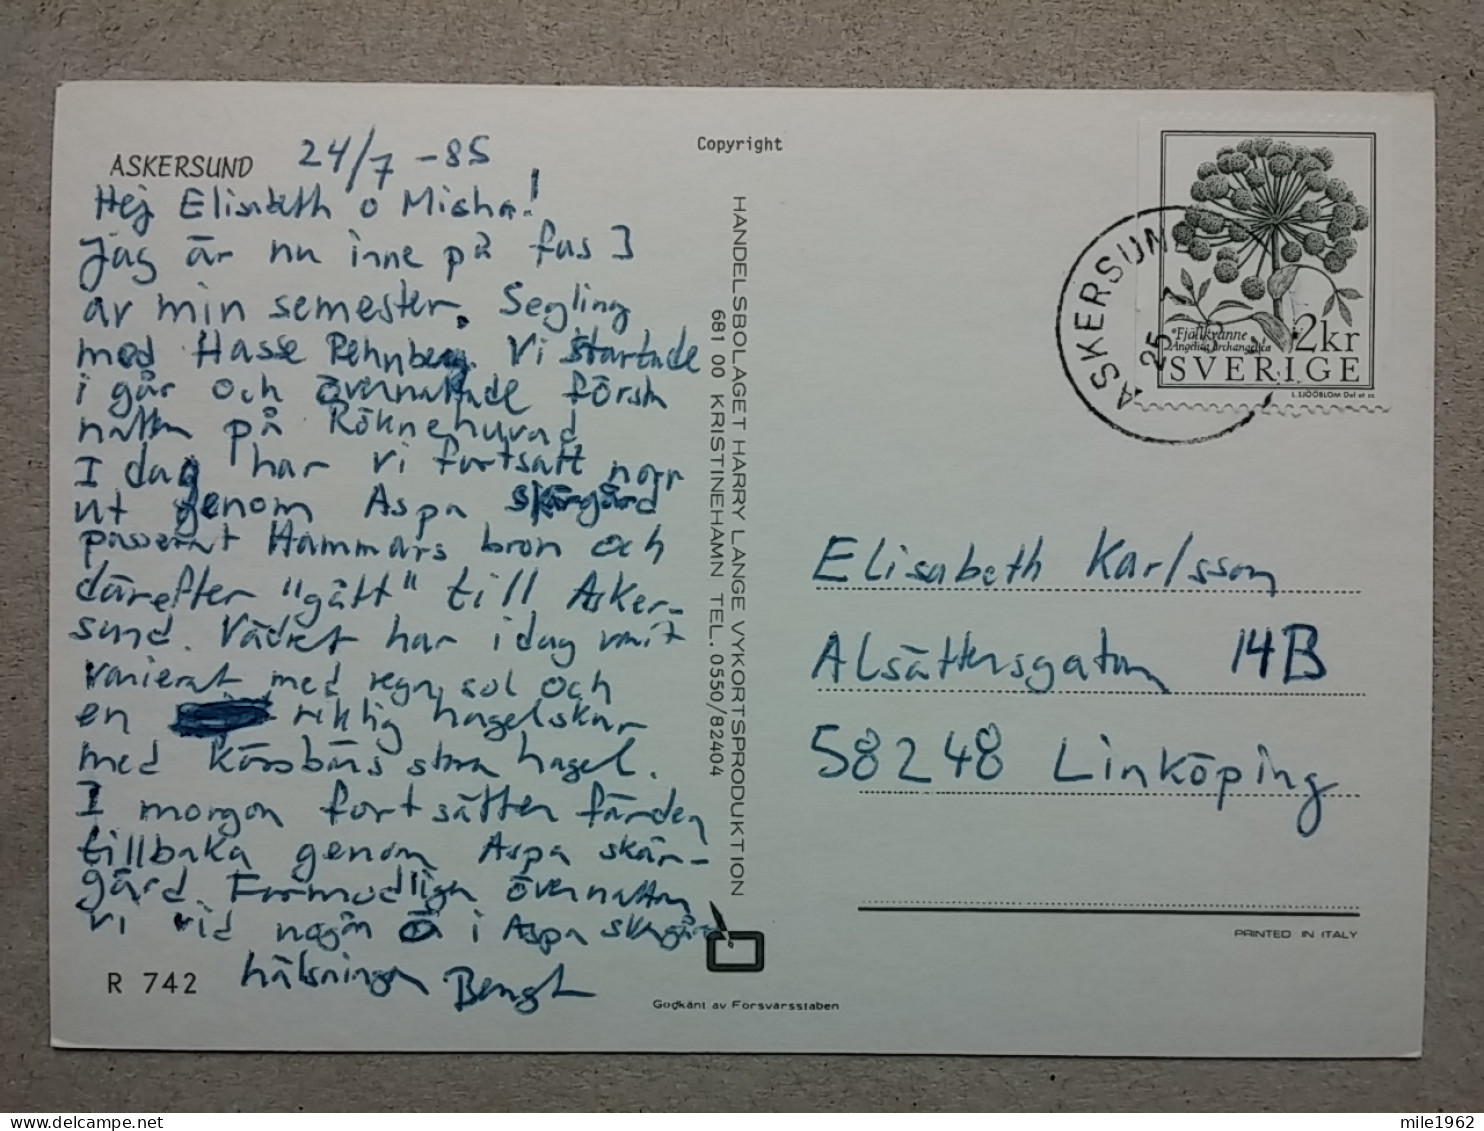 ASKERSUND 24/7 -85
Hej Elisabeth o Micha!
Jag är nu inne på fas 3
av min semester. Segling
med Hasse Rehnberg. Vi startade
i går och övernattade första
natten på Röknehuvud
I dag har vi fortsatt norr
ut genom Aspa skärgård
passerat Hammars bron och
därefter "gått" till Asker-
sund. Vädret har idag varit
varierat med regn, sol och
en riktig hagelskur
med körsbärs stora hagel.
I morgon fortsätter färden
tillbaka genom Aspa skär-
gård. Förmodligen övernattar
vi vid någon ö i Aspa skärgård
hälsningar Bengt
R 742
Copyright
HANDELSBOLAGET HARRY LANGE VYKORTSPRODUKTION
681 00 KRISTINEHAMN TEL. 0550/82404
Godkänt av Försvarsstaben
ASKERSUN
25 7
Fjällkvanne
Angelica archangelica
2kr
SVERIGE
L.SJÖÖBLOM Del et sc
Elisabeth Karlsson
Alsättersgatan 14B
58248 Linköping
PRINTED IN ITALY
mile1962